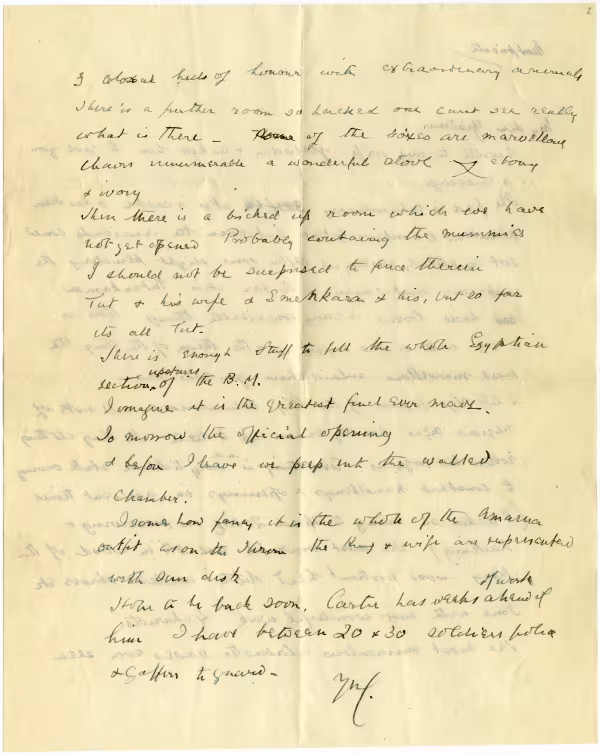 2
3 colossal beds of honour with extraordinary animals
There is a further room so hacked one cant see really
what is there – Some of the boxes are marvellous
chairs innumerable a wonderful stool X ebony
& ivory
Then there is a bricked up room which we have
not yet opened Probably containing the mummies
I should not be surprised to find therein
Tut & his wife & Smenkkara & his, but so far
its all Tut.
There is enough stuff to fill the whole Egyptian
upstairs
section of the B.M.
I imagine it is the greatest find ever made.
To morrow the official opening
& before I leave we peep into the walled
chamber.
I some how fancy it is the whole of the Amarna
outfit as on the throne the King & wife are represented
with sun disk
Home to be back soon. Carter has weeks of work ahead of
him I have between 20 & 30 soldiers police
& Gaffirs to guard –